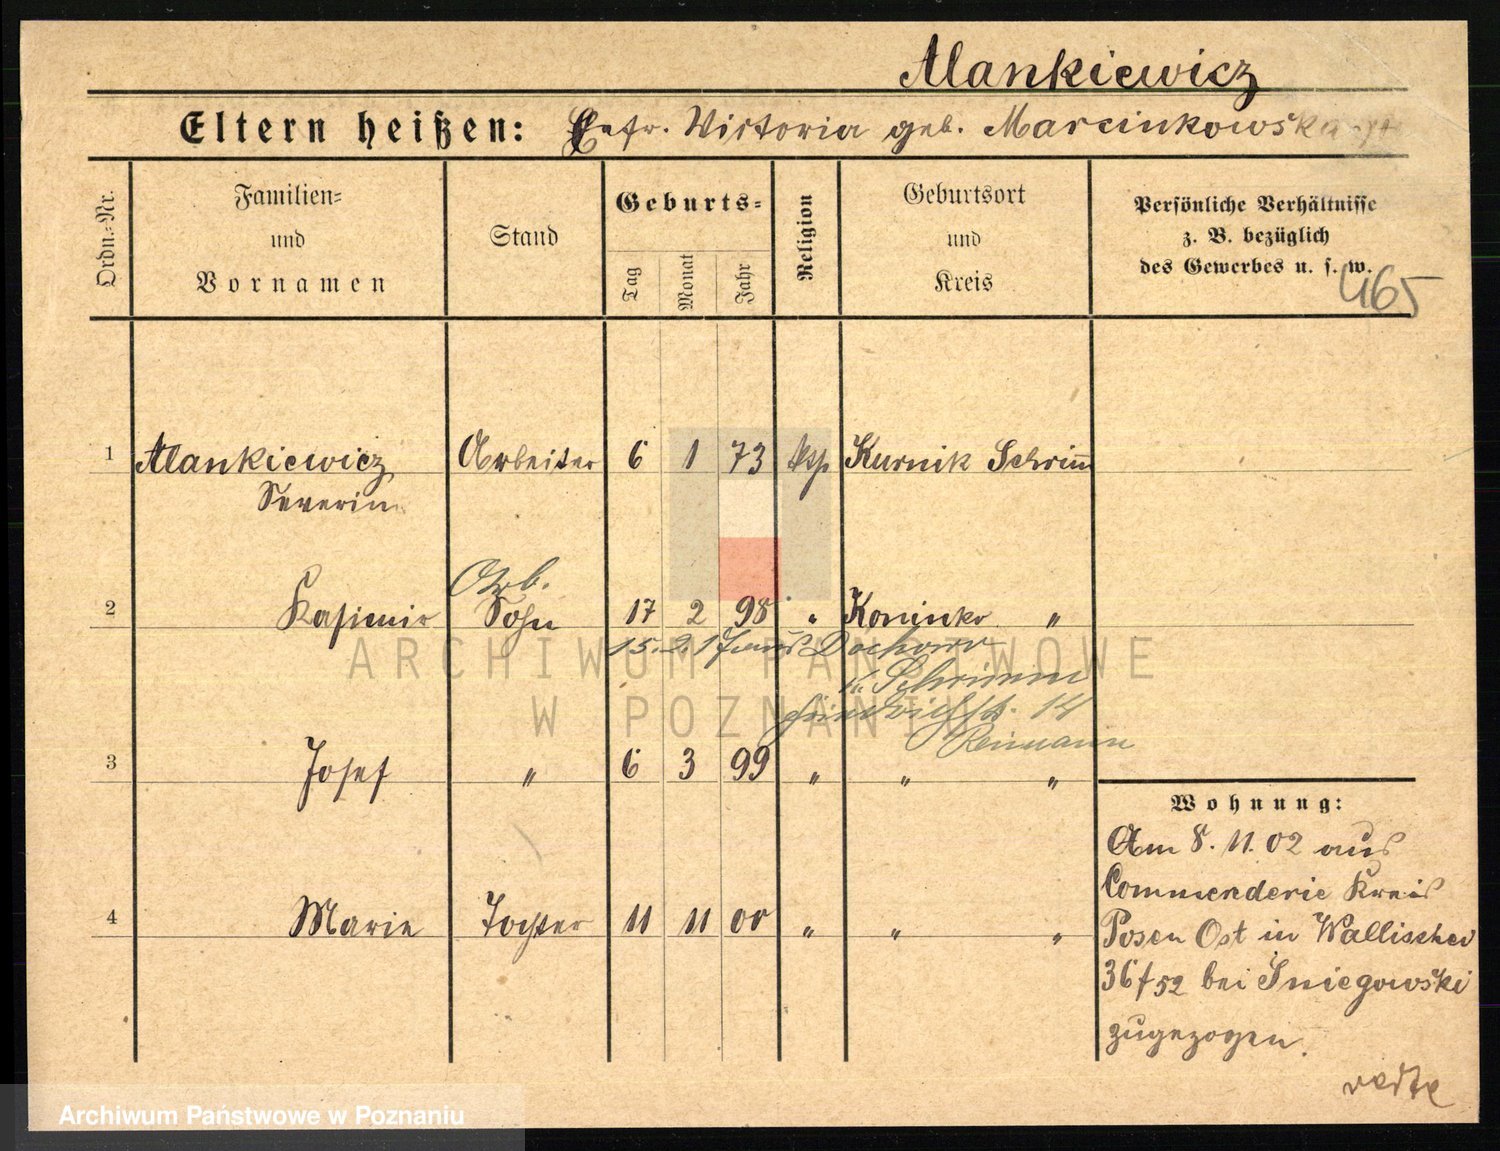 Alankiewicz
Eltern heißen: Ehefr. Victoria geb. Marcinkowska
Ordn.-Nr.
Familien-
und
Vornamen
Stand
Geburts-
Tag
Monat
Jahr
Religion
Geburtsort
und
Kreis
Persönliche Verhältnisse
z. B. bezüglich
des Gewerbes u. s. w.
465
1 Alankiewicz Arbeiter 6 1 73 ksp Kurnik Schrim̅
Severin
Arb.
2 Kasimir Sohn 17 2 98 " Koninko "
15.2.17 aus Dachowo
K. Schrimm
Friedrichstr. 14
Reimann
3 Josef " 6 3 99 " " "
4 Marie Tochter 11 11 00 " " "
Wohnung:
Am 8. 11. 02 aus
Commenderie Kreis
Posen Ost in Wallischei
36/52 bei Sniegowski
zugezogen.
ARCHIWUM PAŃSTWOWE
W POZNANIU
Archiwum Państwowe w Poznaniu